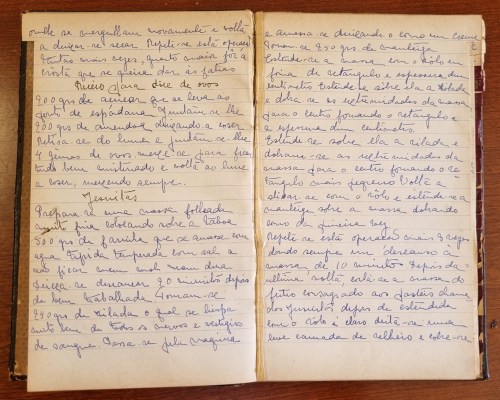 onde se mergulham novamente e volta
a deixar-se secar. Repete-se esta operação
tantas mais vezes, quanto maior fôr a
crosta que se queira dar às fatias
Recheio para doce de ovos
200 grs de açúcar que se leva ao
ponto de espadana. Juntam-se-lhe
200 grs de amendoa deixando a cozer
Retira-se do lume e juntam-se-lhe
4 gemas de ovos, mexe-se para ficar
tudo bem misturado e volta ao lume
a cozer, mexendo sempre.
Jesuitas
Prepara-se uma massa folhada
muito fina colocando sobre a táboa
500 grs de farinha que se amassa com
agua tépida temperada com sal a
não ficar nem mole nem dura
Deixa-se descansar 20 minutos depois
de bem trabalhada. Tomam-se
250 grs de rilada o qual se limpa
muito bem de todos os nervos e vestigios
de sangue. Passa-se pela maquina
e amassa-se deixando-o como um creme
Tomam-se 250 grs de manteiga
Estende-se a massa com o rôlo em
forma de rectângulo e espessura dum
centimetro. Estende-se sobre ela a rilada
e dobra-se as extremidades da massa
para o centro formando o rectangulo e
a espessura dum centimetro.
Estende-se sobre ela a rilada e
dobram-se as extremidades da
massa para o centro fornando o re
tangulo mais pequeno. Volta a
alisar-se com o rôlo e estende-se a
manteiga sobre a massa dobrando
como da primeira vez.
Repete-se esta operação mais 3 vezes
dando sempre um descanso a
massa de 10 minutos. Depois da
ultima volta, corta-se a massa do
feitio consagrado aos pasteis
dos Jesuitas depois de estendida
com o rôlo é claro deita-se uma
leve camada de recheio e cobre-se